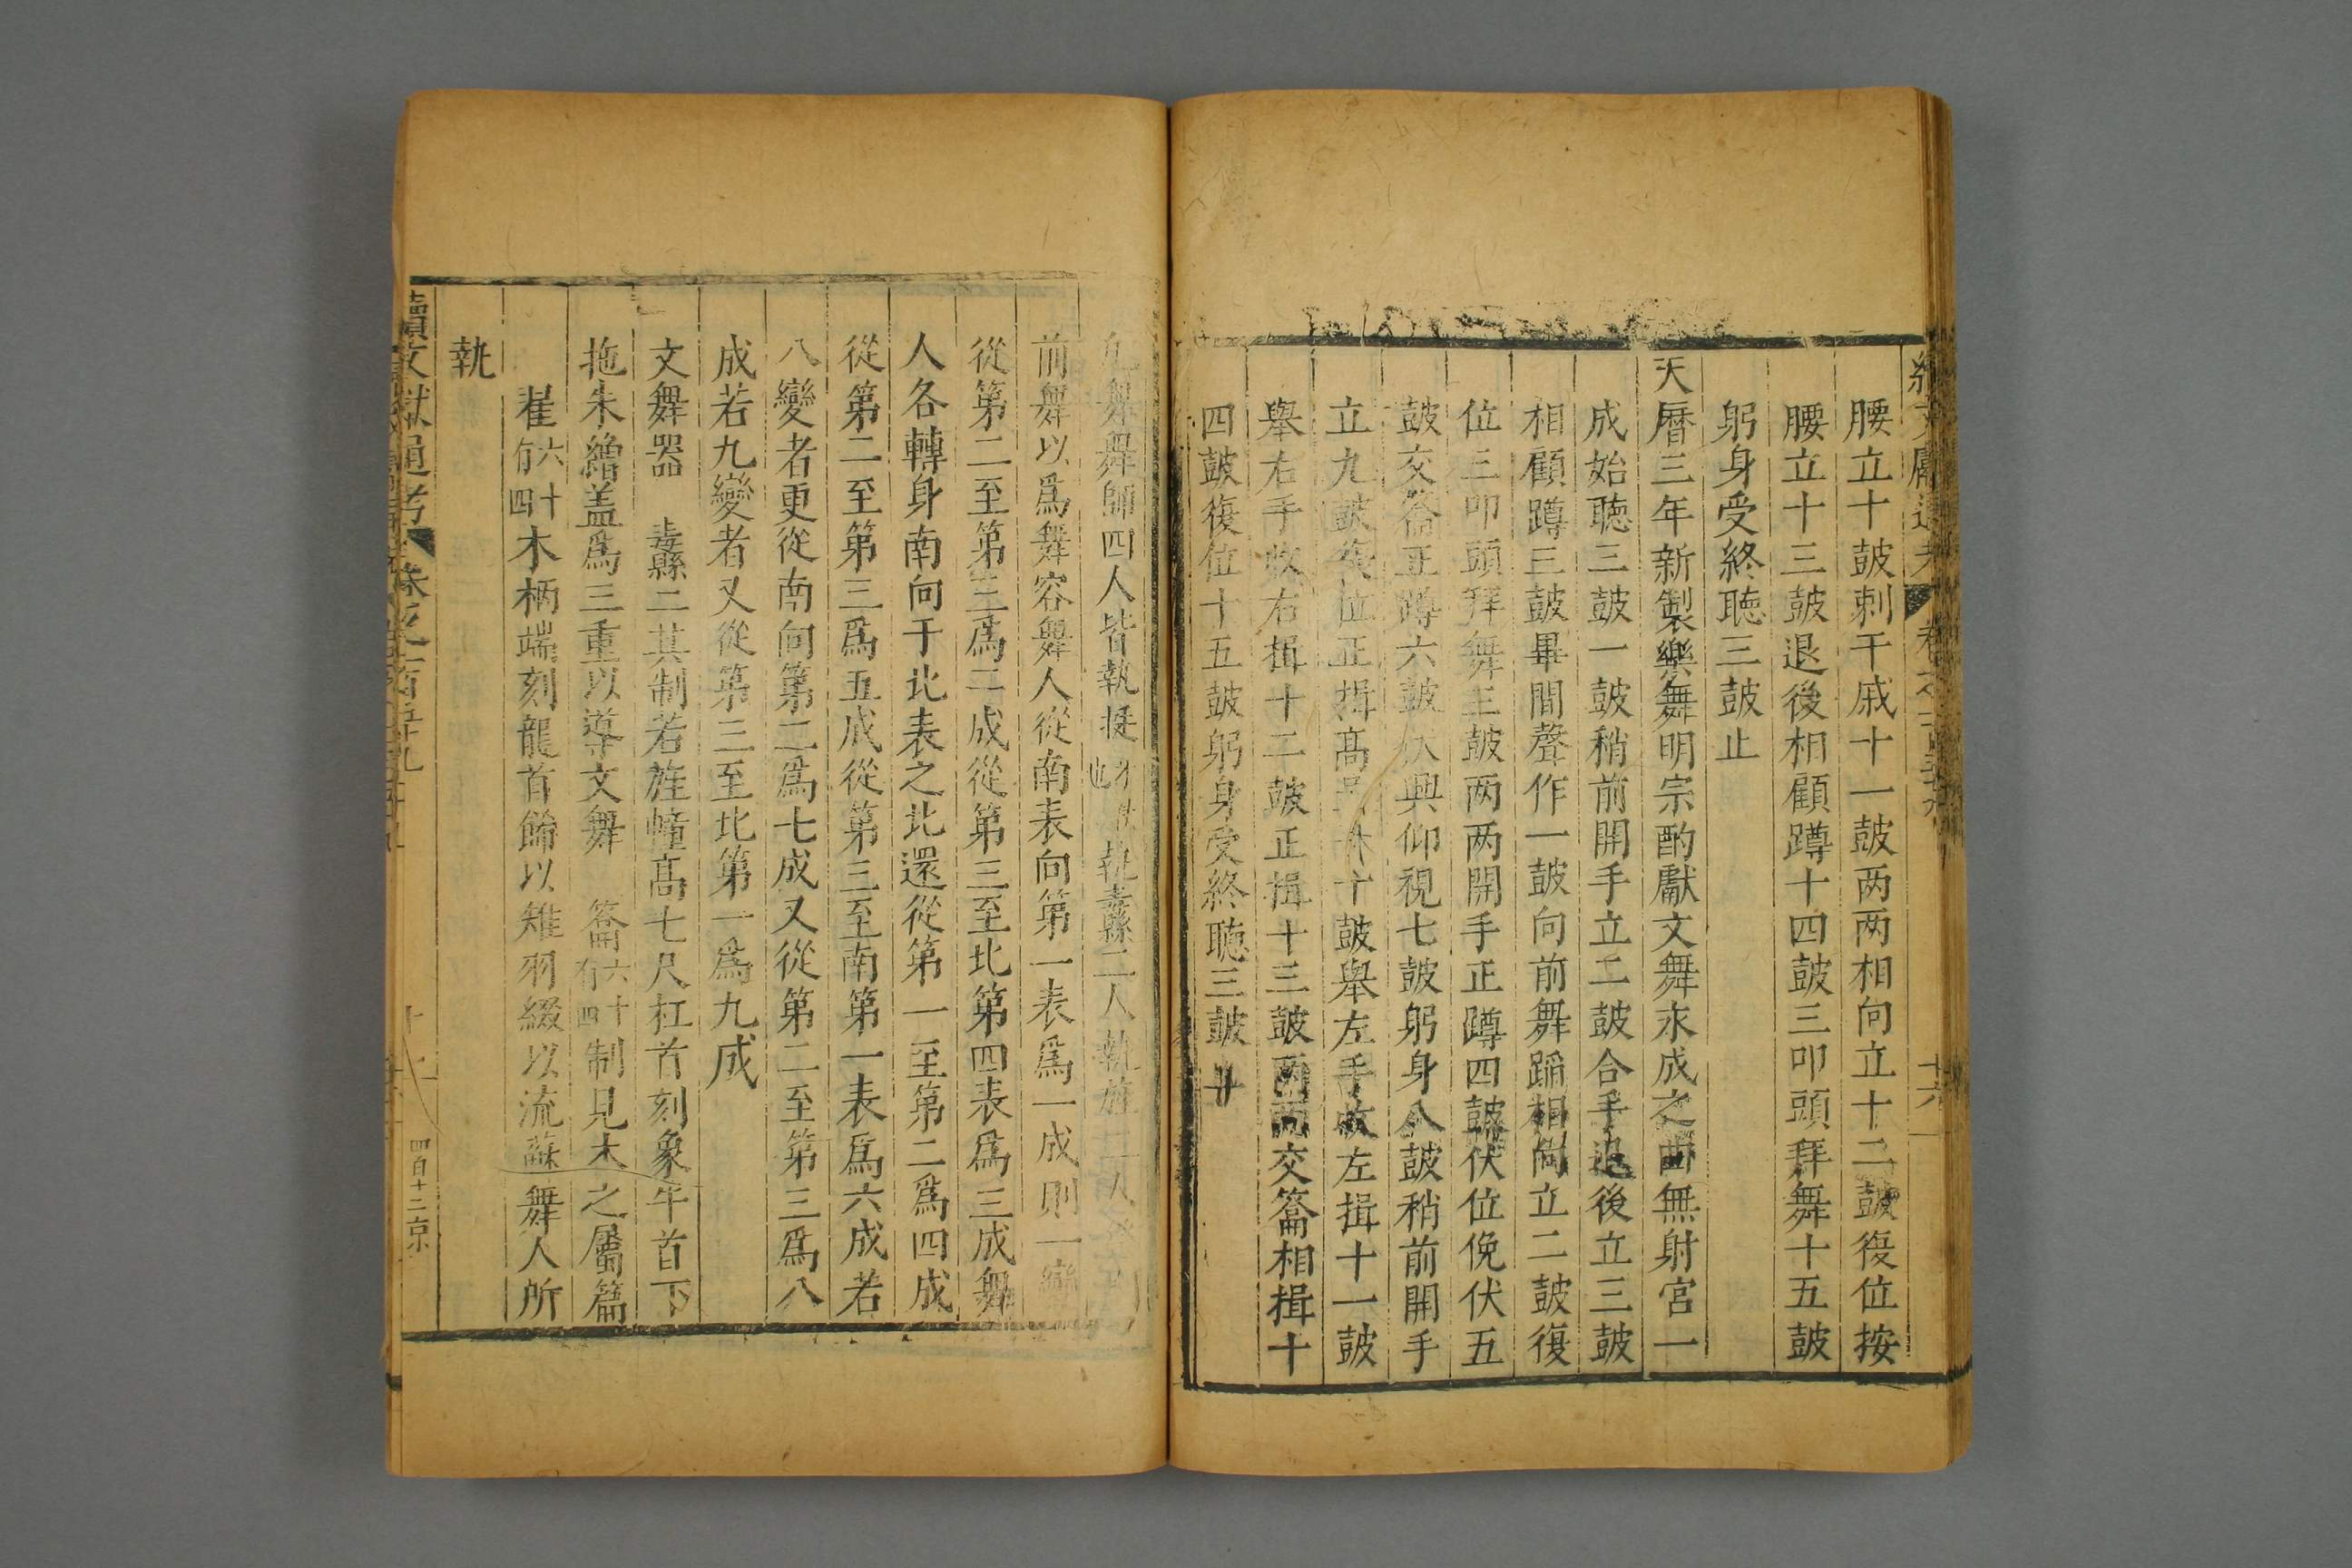 腰立十鼓刺干戚十一鼓两两相向立十二鼓復位按
腰立十三鼓退後相顧蹲十四鼓三叩頭拜舞十五鼓
躬身受終聴三鼓止
天曆三年新製樂舞明宗酌獻文舞永成之曲無射宮一
成始聴三鼓一鼓稍前開手立二鼓合手退後立三鼓
相顧蹲三鼓畢間聲作一鼓向前舞蹈相向立二鼓復
位三叩頭拜舞三鼓两两開手正蹲四鼓伏位俛伏五
鼓交籥正蹲六鼓伏興仰視七鼓躬身八鼓稍前開手
立九鼓復位正揖高呈十鼓舉左手收左揖十一鼓
舉右手收右揖十二鼓正揖十三鼓两两交籥相揖十
四鼓復位十五鼓躬身受終聴三鼓止
凡舞舞師四人皆執挺 執纛二人執旌二人
前舞以爲舞容舞人從南表向第一表爲一成則一變
從第二至第三爲二成從第三至北第四表爲三成舞
人各轉身南向于北表之北還從第一至第二爲四成
從第二至第三爲五成從第三至南第一表爲六成若
八變者更從南向第二爲七成又從第二至第三爲八
成若九變者又從第三至北第一爲九成
文舞器 纛二其制若旌幢高七尺杠首刻象牛首下
拖朱繒盖爲三重以導文舞 籥六十有四制見木之屬篇
翟六十有四木柄端刻龍首飾以雉羽綴以流蘇舞人所
執
續文獻通考 卷之一百五九 四百十三京